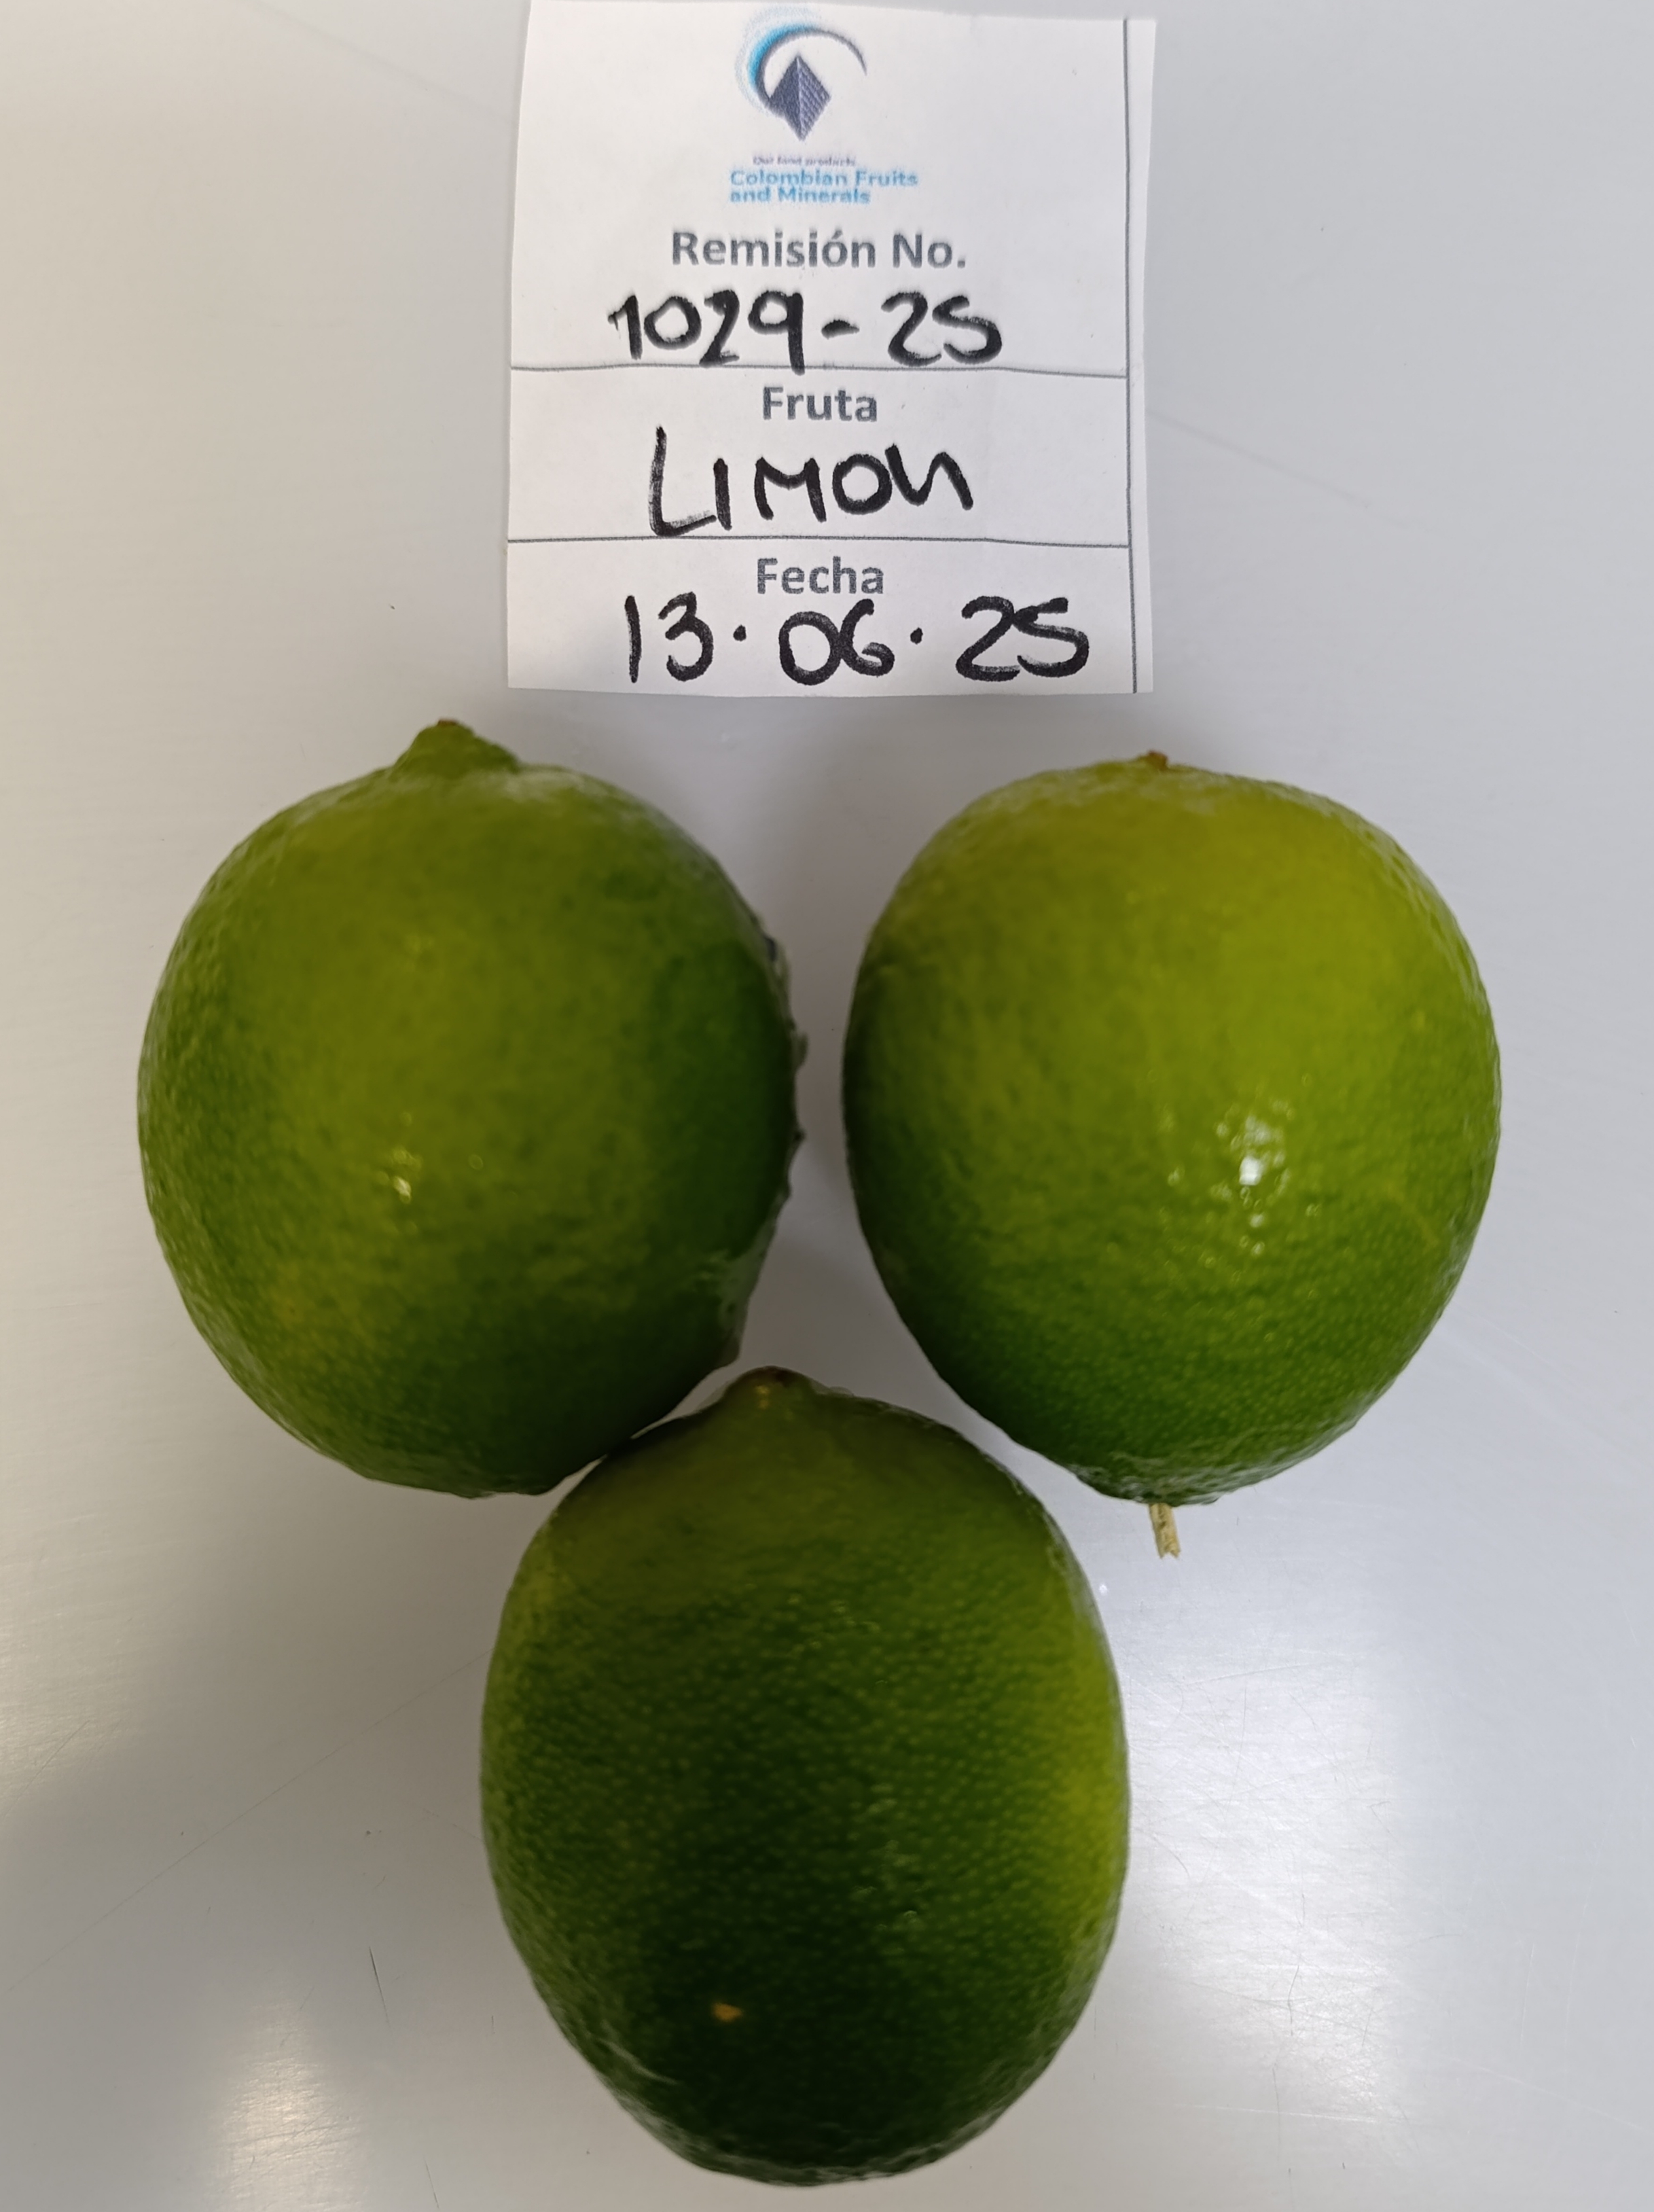 Our food products
Colombian Fruits
and Minerals
Remisión No.
1029-25
Fruta
LIMON
Fecha
13.06.25